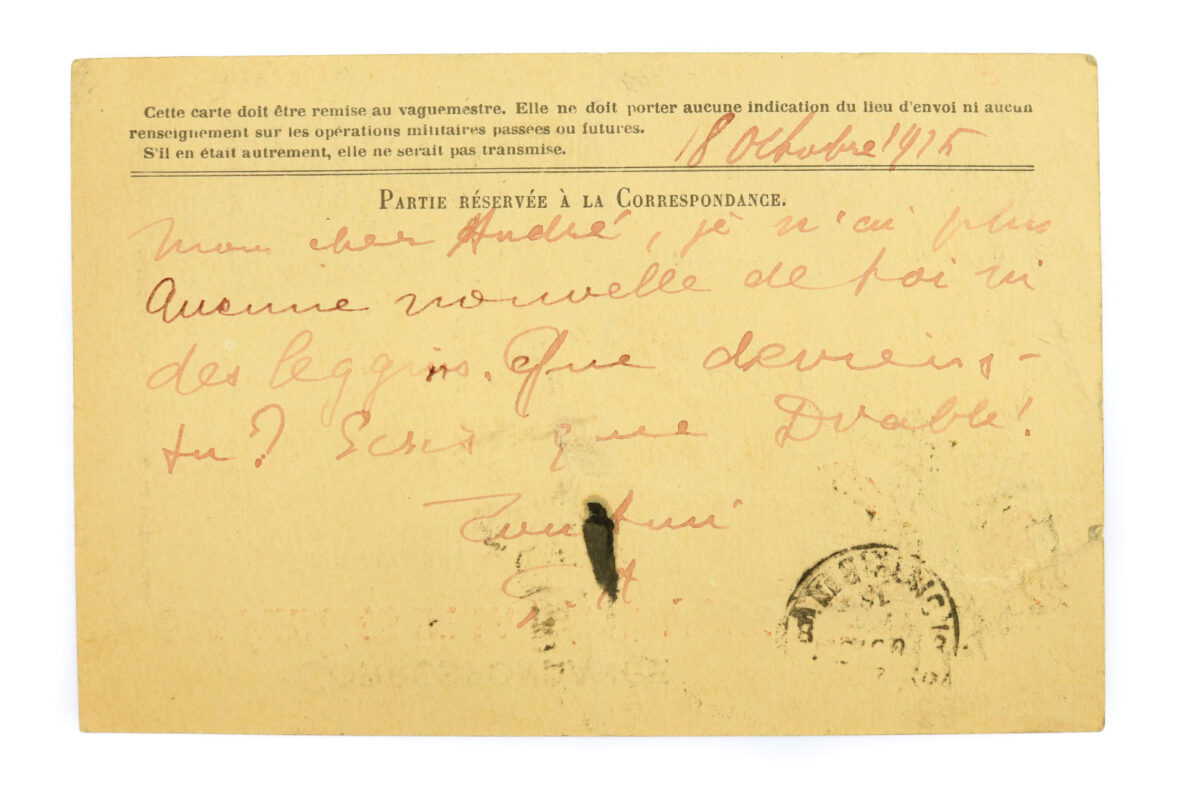 Cette carte doit être remise au vaguemestre. Elle ne doit porter aucune indication du lieu d'envoi ni aucun
renseignement sur les opérations militaires passées ou futures.
S'il en était autrement, elle ne serait pas transmise.
18 Octobre 1915
PARTIE RÉSERVÉE À LA CORRESPONDANCE.
Mon cher André, je n'ai plus
Aucune nouvelle de toi ni
des leggins. Que deviens-
tu? Ecris que Diable!
Ton Ami